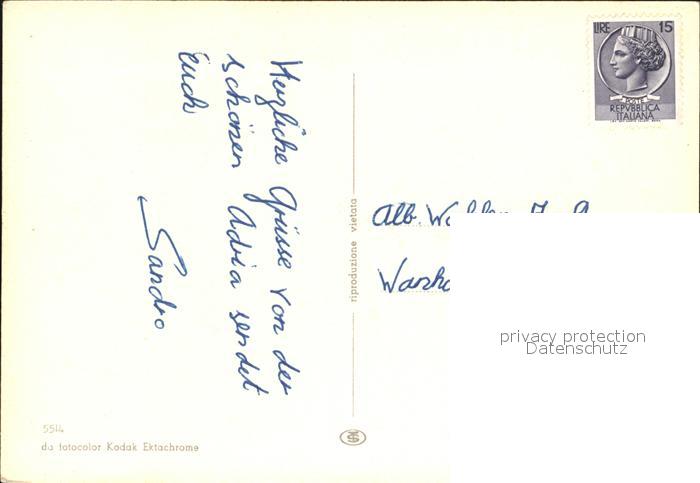 Herzliche Grüsse von der
schönen Adria sendet
Euch
Sandro
LIRE 15
POSTE
REPVBBLICA
ITALIANA
riproduzione vietata
Alb.
privacy protection
Datenschutz
5514
da fotocolor Kodak Ektachrome